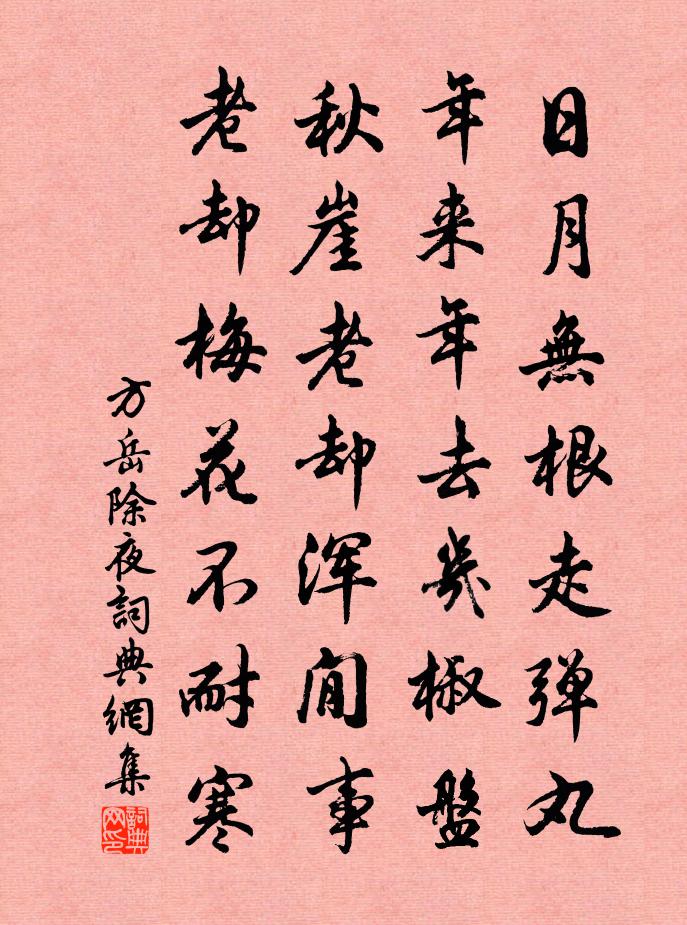 日月無根走弹丸
年来年去幾椒盤
秋崖老却浑閒事
老却梅花不耐寒
方岳除夜詞典網集
詞典网印